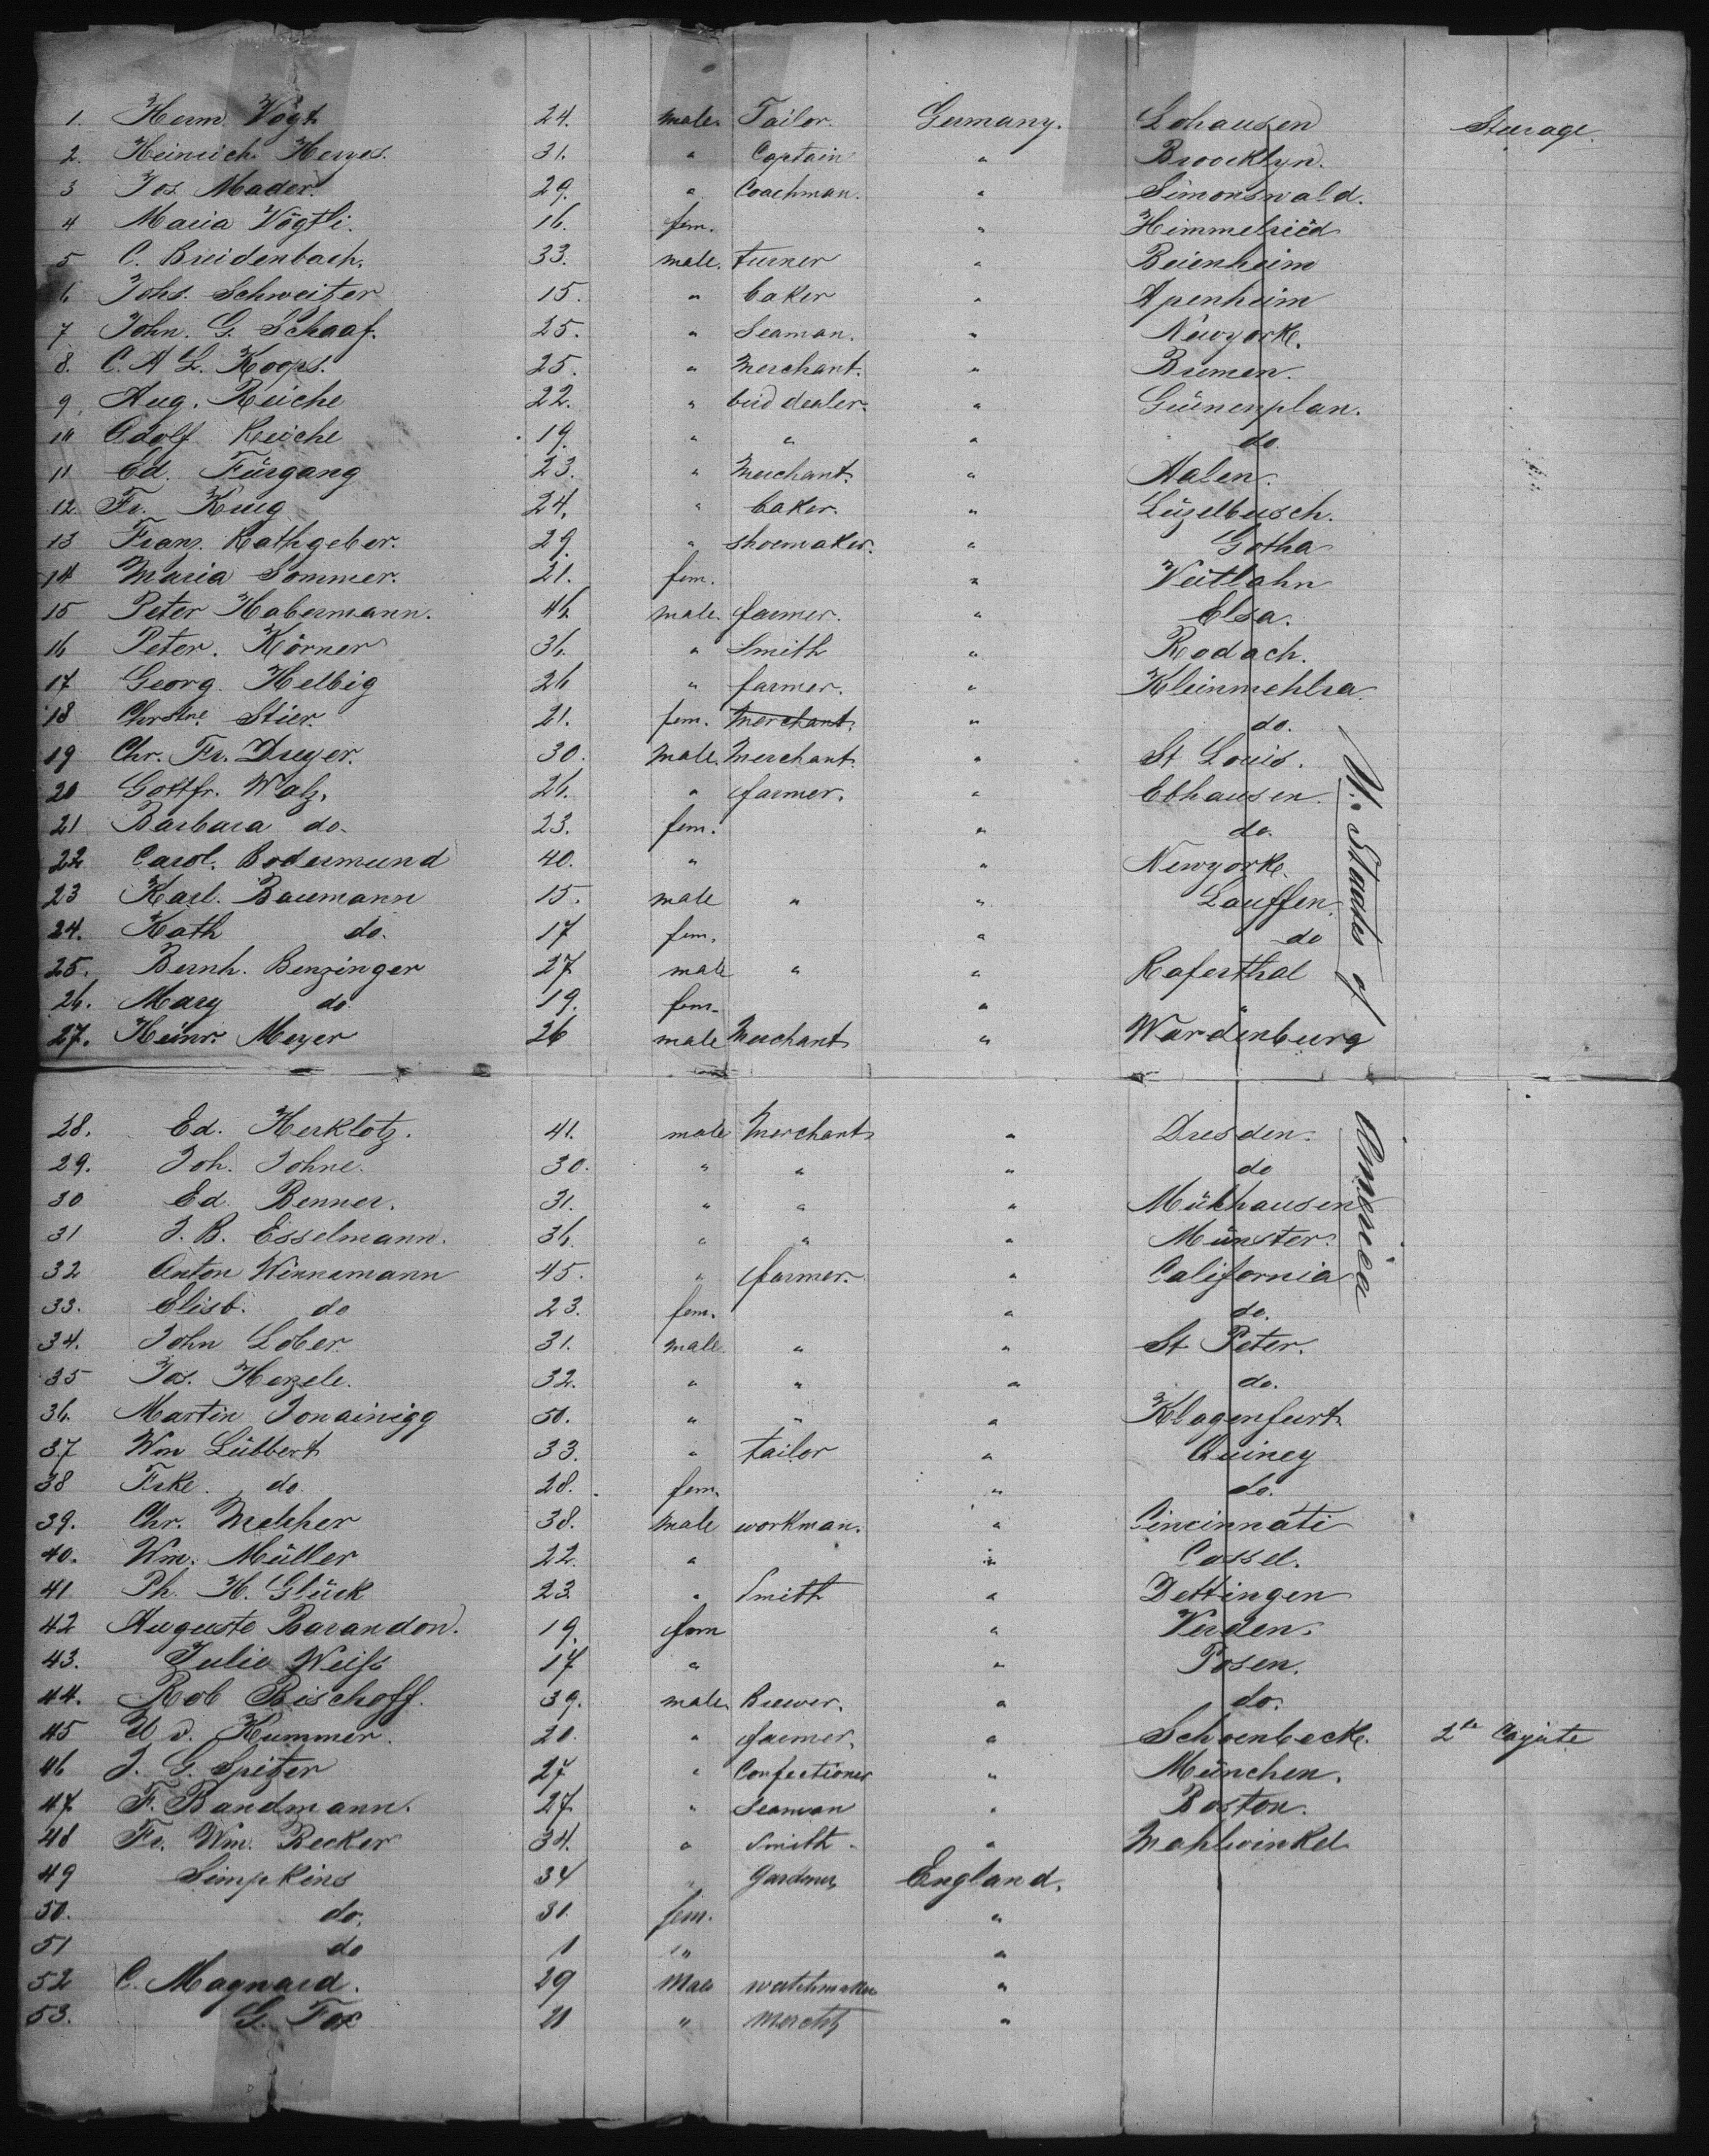 1. Herm. Vögt 24. male. Tailor. Germany. Lohausen Steerage.
2. Heinrich Heryes. 31. " Captain " Broocklyn.
3 Jos. Mader. 29. " Coachman. " Simonswald.
4 Maria Vögtli. 16. fem. " Himmelried
5 C. Breidenbach. 33. male. turner " Beienheim
6 Johs. Schweitzer 15. " baker " Apenheim
7 John. G. Schaaf. 25. " Seaman. " Newyork.
8. C. A L. Koops. 25. " Merchant. " Bremen.
9. Aug. Reiche 22. " bird dealer. " Grünenplan.
10 Adolf Reiche 19. " " " do
11 Ed. Fürgang 23. " Merchant. " Aalen.
12. Fr. Krug 24. " baker. " Lüzelbusch.
13 Franz. Rathgeber. 29. " shoemaker. " Gotha
14 Maria Sommer. 21. fem. " Veitlahn
15 Peter Habermann. 46 male. farmer. " Elsa.
16 Peter. Körner 36. " Smith " Rodach.
17 Georg. Helbig 26 " farmer. " Kleinmehlra
18 Chrstne. Stier. 21. fem. Merchant. " do.
19 Chr. Fr. Dreyer. 30. Male. Merchant. " St Louis.
20 Gottfr. Walz. 26. " farmer. " Ebhausen.
21 Barbara do. 23. fem. " do.
22 Carol. Bodermund 40. " " Newyork.
23 Karl. Baumann 15. male " " Lauffen.
24. Kath do. 17 fem. " do
25. Bernh. Benzinger 27 male " " Kaferthal
26. Mary do 19. fem. " "
27. Heinr. Meyer 26 male Merchant " Wardenburg
U. States of
28. Ed. Herklotz. 41. male Merchant " Dresden.
29. Joh. Johne. 30. " " " do
30 Ed Benner. 31. " " " Mükhausen
31 J. B. Esselmann. 36. " " " Münster.
32 Anton Winnemann 45. " farmer. " California
33. Elisb. do 23. fem. " do.
34. John Lober. 31. male " " St Peter.
35 Jos. Herzele. 32. " " " do.
36. Martin Jonainigg 50. " " " Klagenfurt.
37 Wm Lübbert 33. " tailor " Quincy
38 Frke. do. 28. fem. " do.
39. Chr. Melcher 38. Male workman. " Cincinnati
40. Wm. Müller 22 " " Cassel.
41 Ph. H. Glück 23. " Smith " Dettingen
42 Auguste Barandon. 19. fem " Verden.
43. Julie Weiſs 17 " " Posen.
44. Rob Bischoff. 39. male. Brewer. " do.
45 U v. Kummer. 20. " farmer. " Schoenbeck. 2te Cajüte
46 J. G. Spitzer 27 " Confectioner " München.
47. F. Bandmann. 27. " Seaman " Boston.
48 Fr. Wm. Becker 34. " Smith " Mahlwinkel
49 Simpkins 34 " Gardener England.
50. do. 31 fem. "
51 do 1 " "
52 C. Magnard. 29 Male watchmaker "
53. G. Fox 21 " Mercht "
America